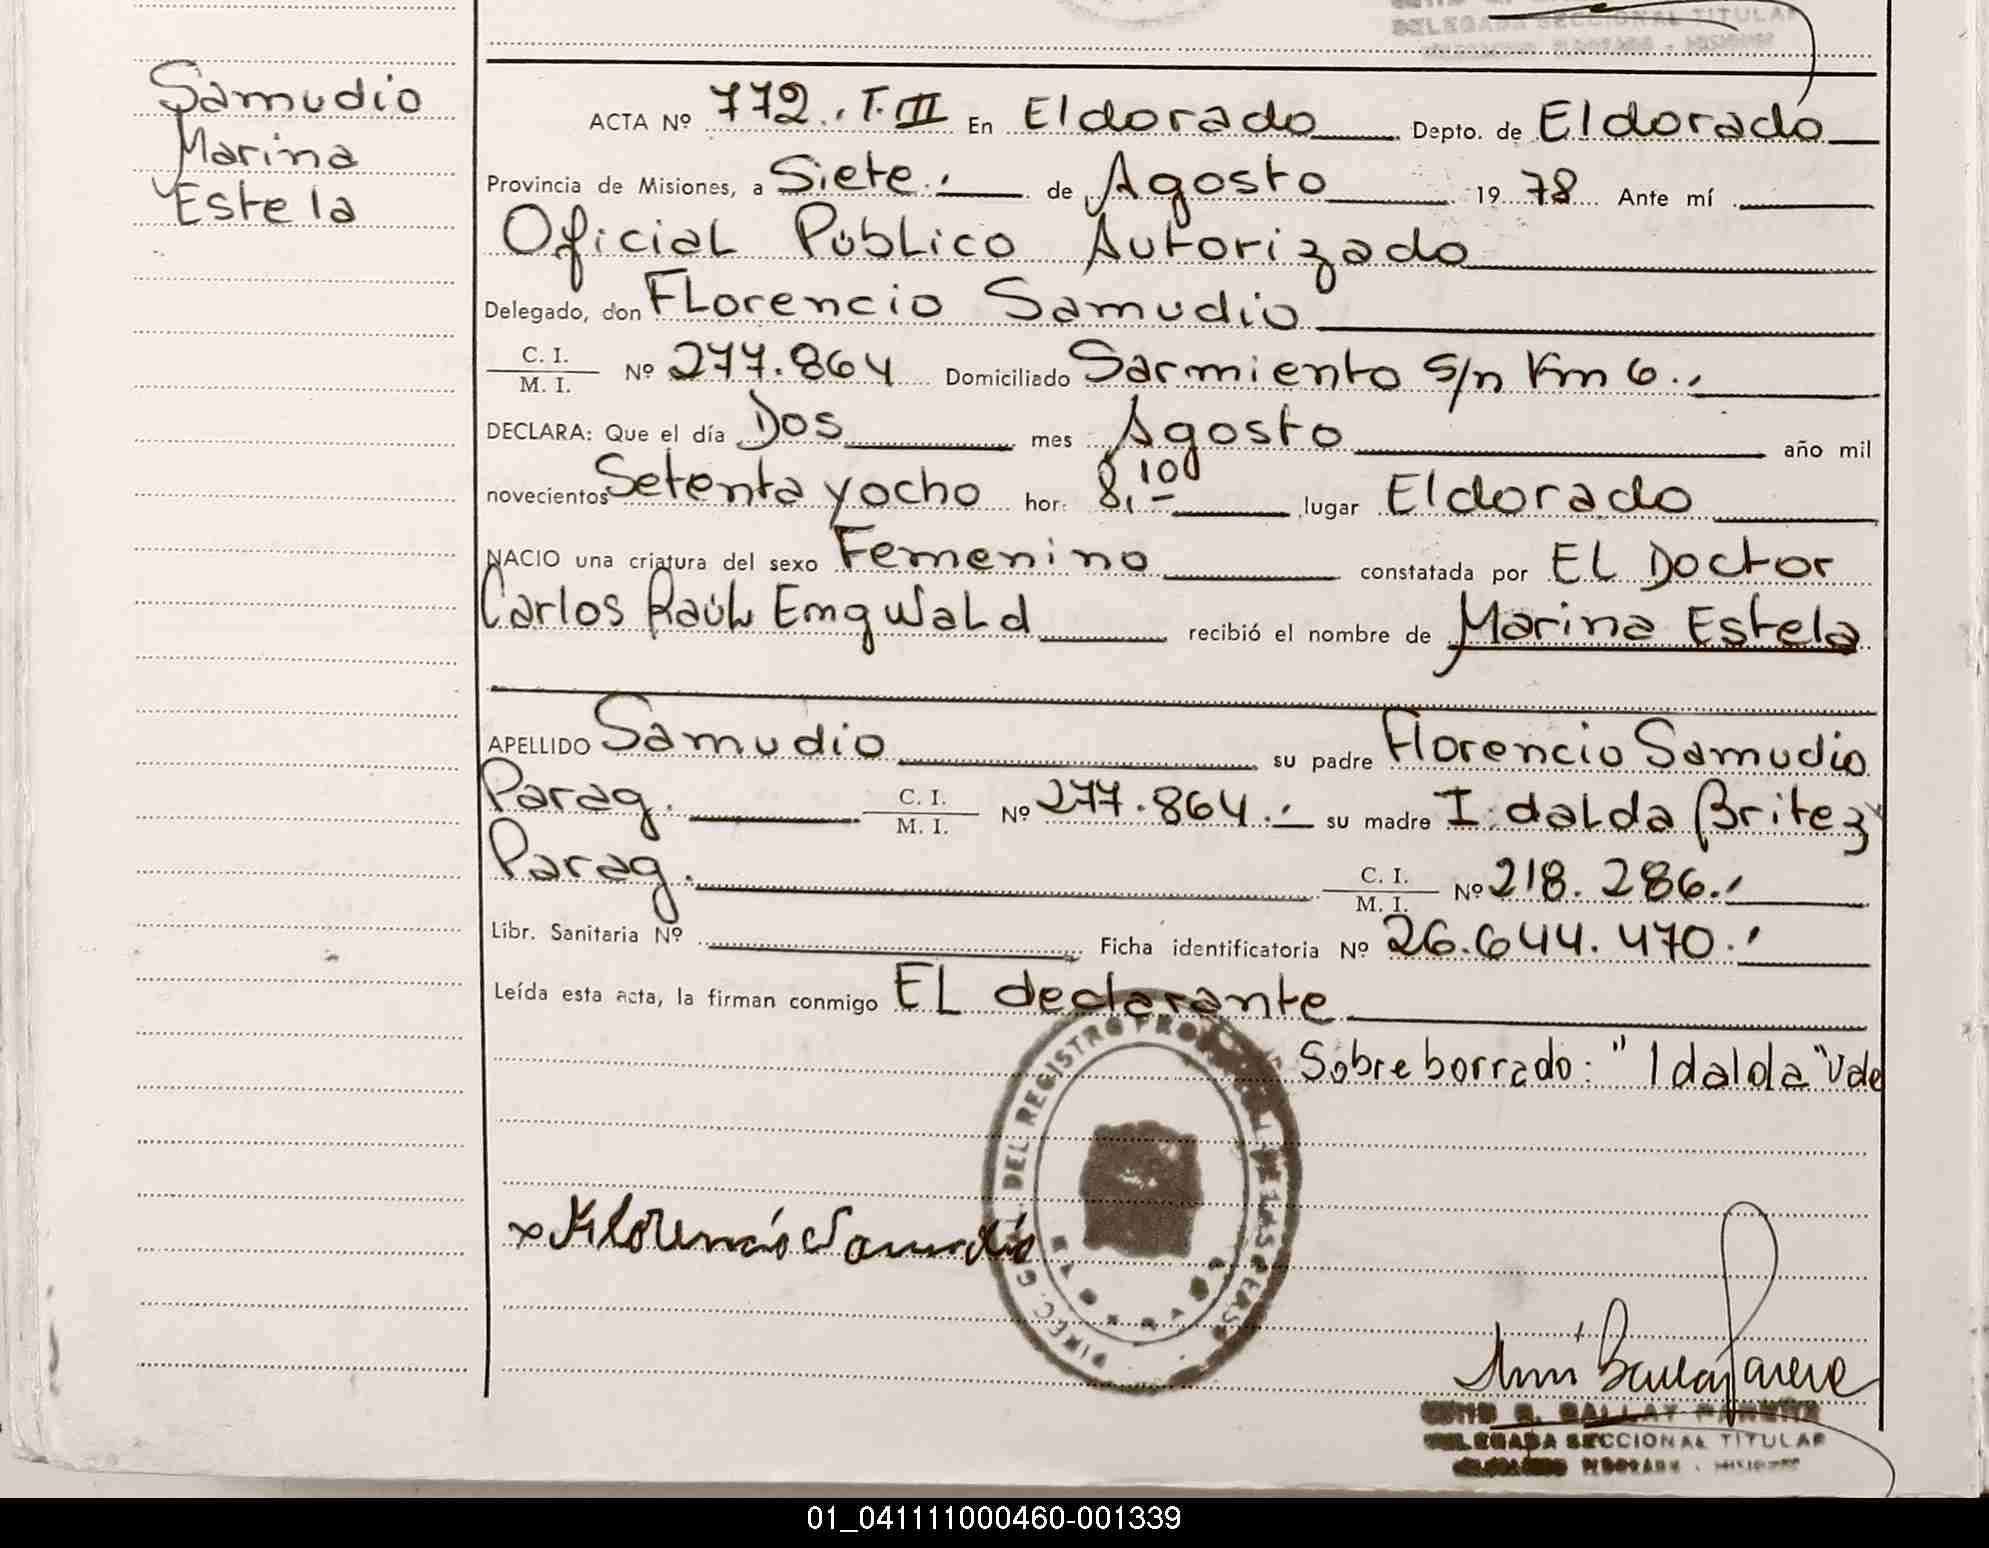 DELEGADA SECCIONAL TITULAR
Samudio
Marina
Estela
ACTA Nº 772., T. III En Eldorado Depto. de Eldorado
Provincia de Misiones, a Siete.- de Agosto 19 78 Ante mí
Oficial Público Autorizado
Delegado, don Florencio Samudio
C. I.
M. I. Nº 277.864 Domiciliado Sarmiento S/n Km 6.,
DECLARA: Que el día Dos mes Agosto año mil
novecientos Setenta y ocho hor: 8,10 lugar Eldorado
NACIO una criatura del sexo Femenino constatada por EL Doctor
Carlos Raúl Emgwald recibió el nombre de Marina Estela
APELLIDO Samudio su padre Florencio Samudio
Parag. C. I.
M. I. Nº 277.864.- su madre Idalda Britez
Parag. C. I.
M. I. Nº 218.286.-
Libr. Sanitaria Nº Ficha identificatoria Nº 26.644.470.-
Leída esta acta, la firman conmigo EL declarante
Sobre borrado: "Idalda" Vale
DIREC. GRAL. DEL REGISTRO PROV. DE LAS PERSONAS
x Florencio Samudio
DELEGADA SECCIONAL TITULAR
01_041111000460-001339